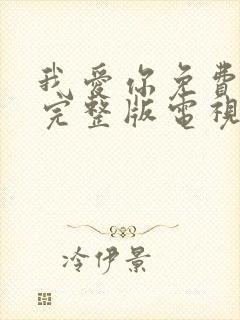 我愛你免費
完整版電視
冷伊景